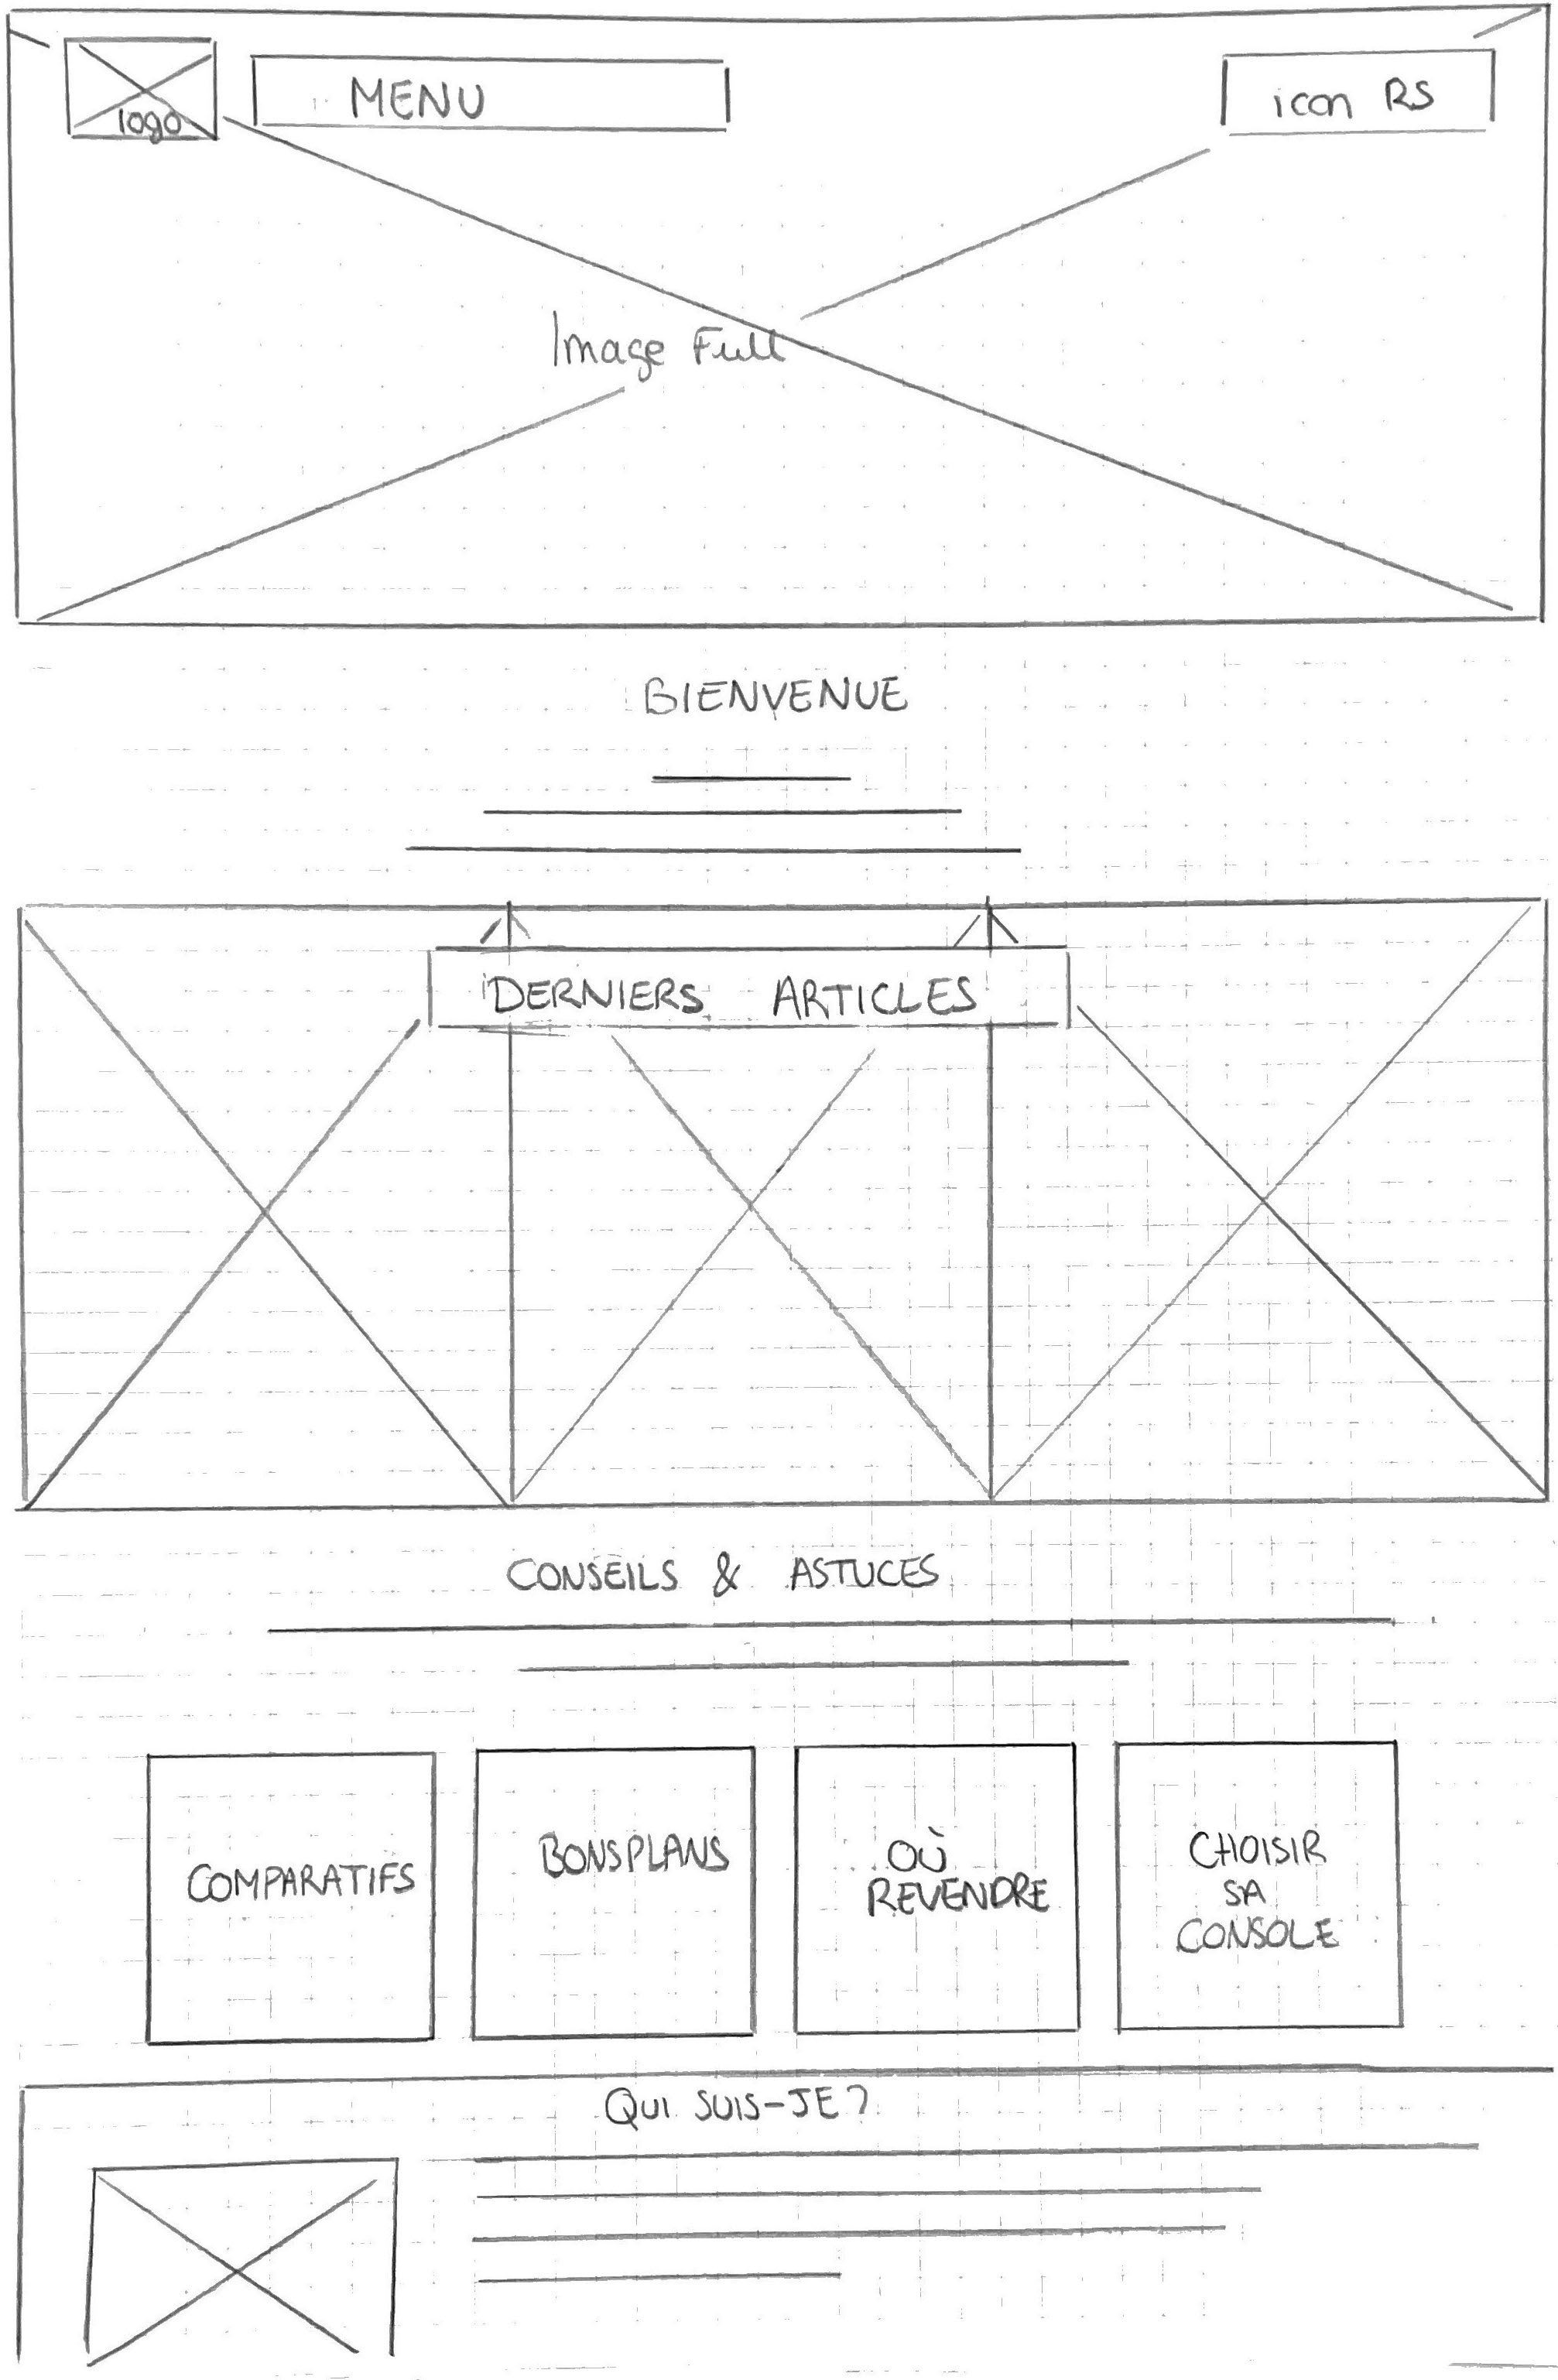 logo
MENU
icon RS
Image Full
BIENVENUE
DERNIERS ARTICLES
CONSEILS & ASTUCES
COMPARATIFS
BONS PLANS
OÙ
REVENDRE
CHOISIR
SA
CONSOLE
QUI SUIS-JE?